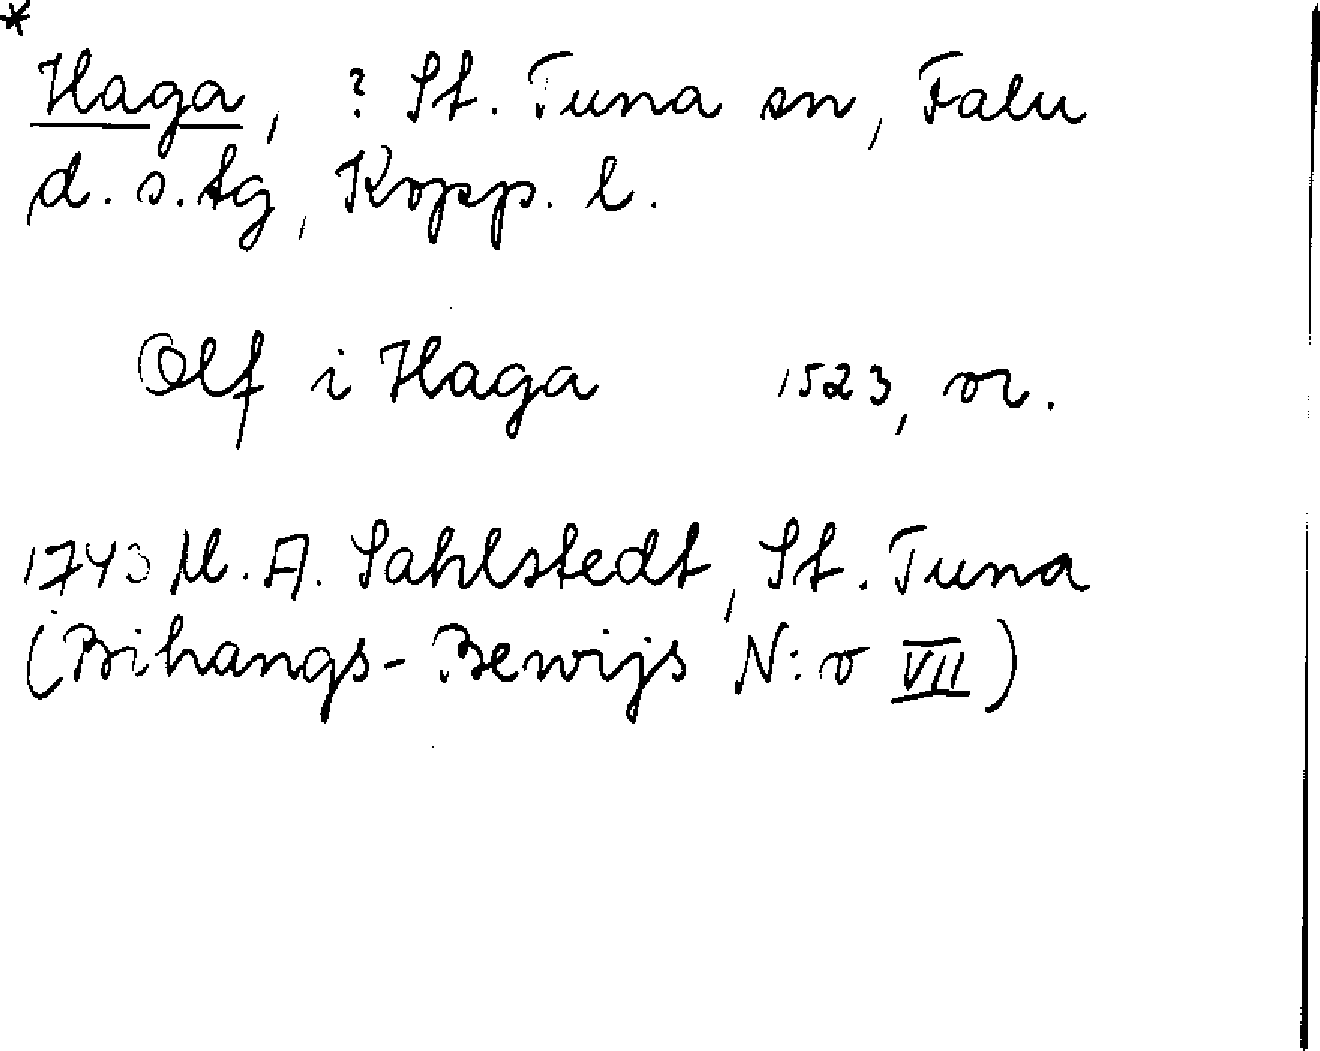 *
Haga, ? St. Tuna sn, Falu
d. s. tg, Kopp. l.
Olf i Haga 1523, or.
1743 M. A. Sahlstedt, St. Tuna
(Bihangs-Bewijs N:o VII)